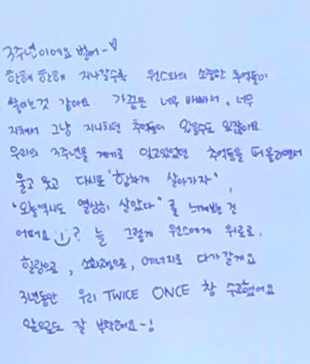 3주년이에요 벌써~♡
한해 한해 지나갈수록 원스와의 소중한 추억들이
쌓이는것 같아요. 가끔은 너무 바빠서, 너무
지쳐서 그냥 지나치던 추억들이 있을수도 있잖아요.
우리의 3주년을 계기로 잊고있었던 추억들을 떠올리면서
울고 웃고 다시또 "힘차게 살아가자",
"오늘역시도 열심히 살았다" 를 느껴보는 건
어때요 ☺? 늘 그렇게 원스에게 위로로,
힐링으로, 에너지로 다가갈게요
3년동안 우리 TWICE ONCE 참 수고했어요
앞으로도 잘 부탁해요~!